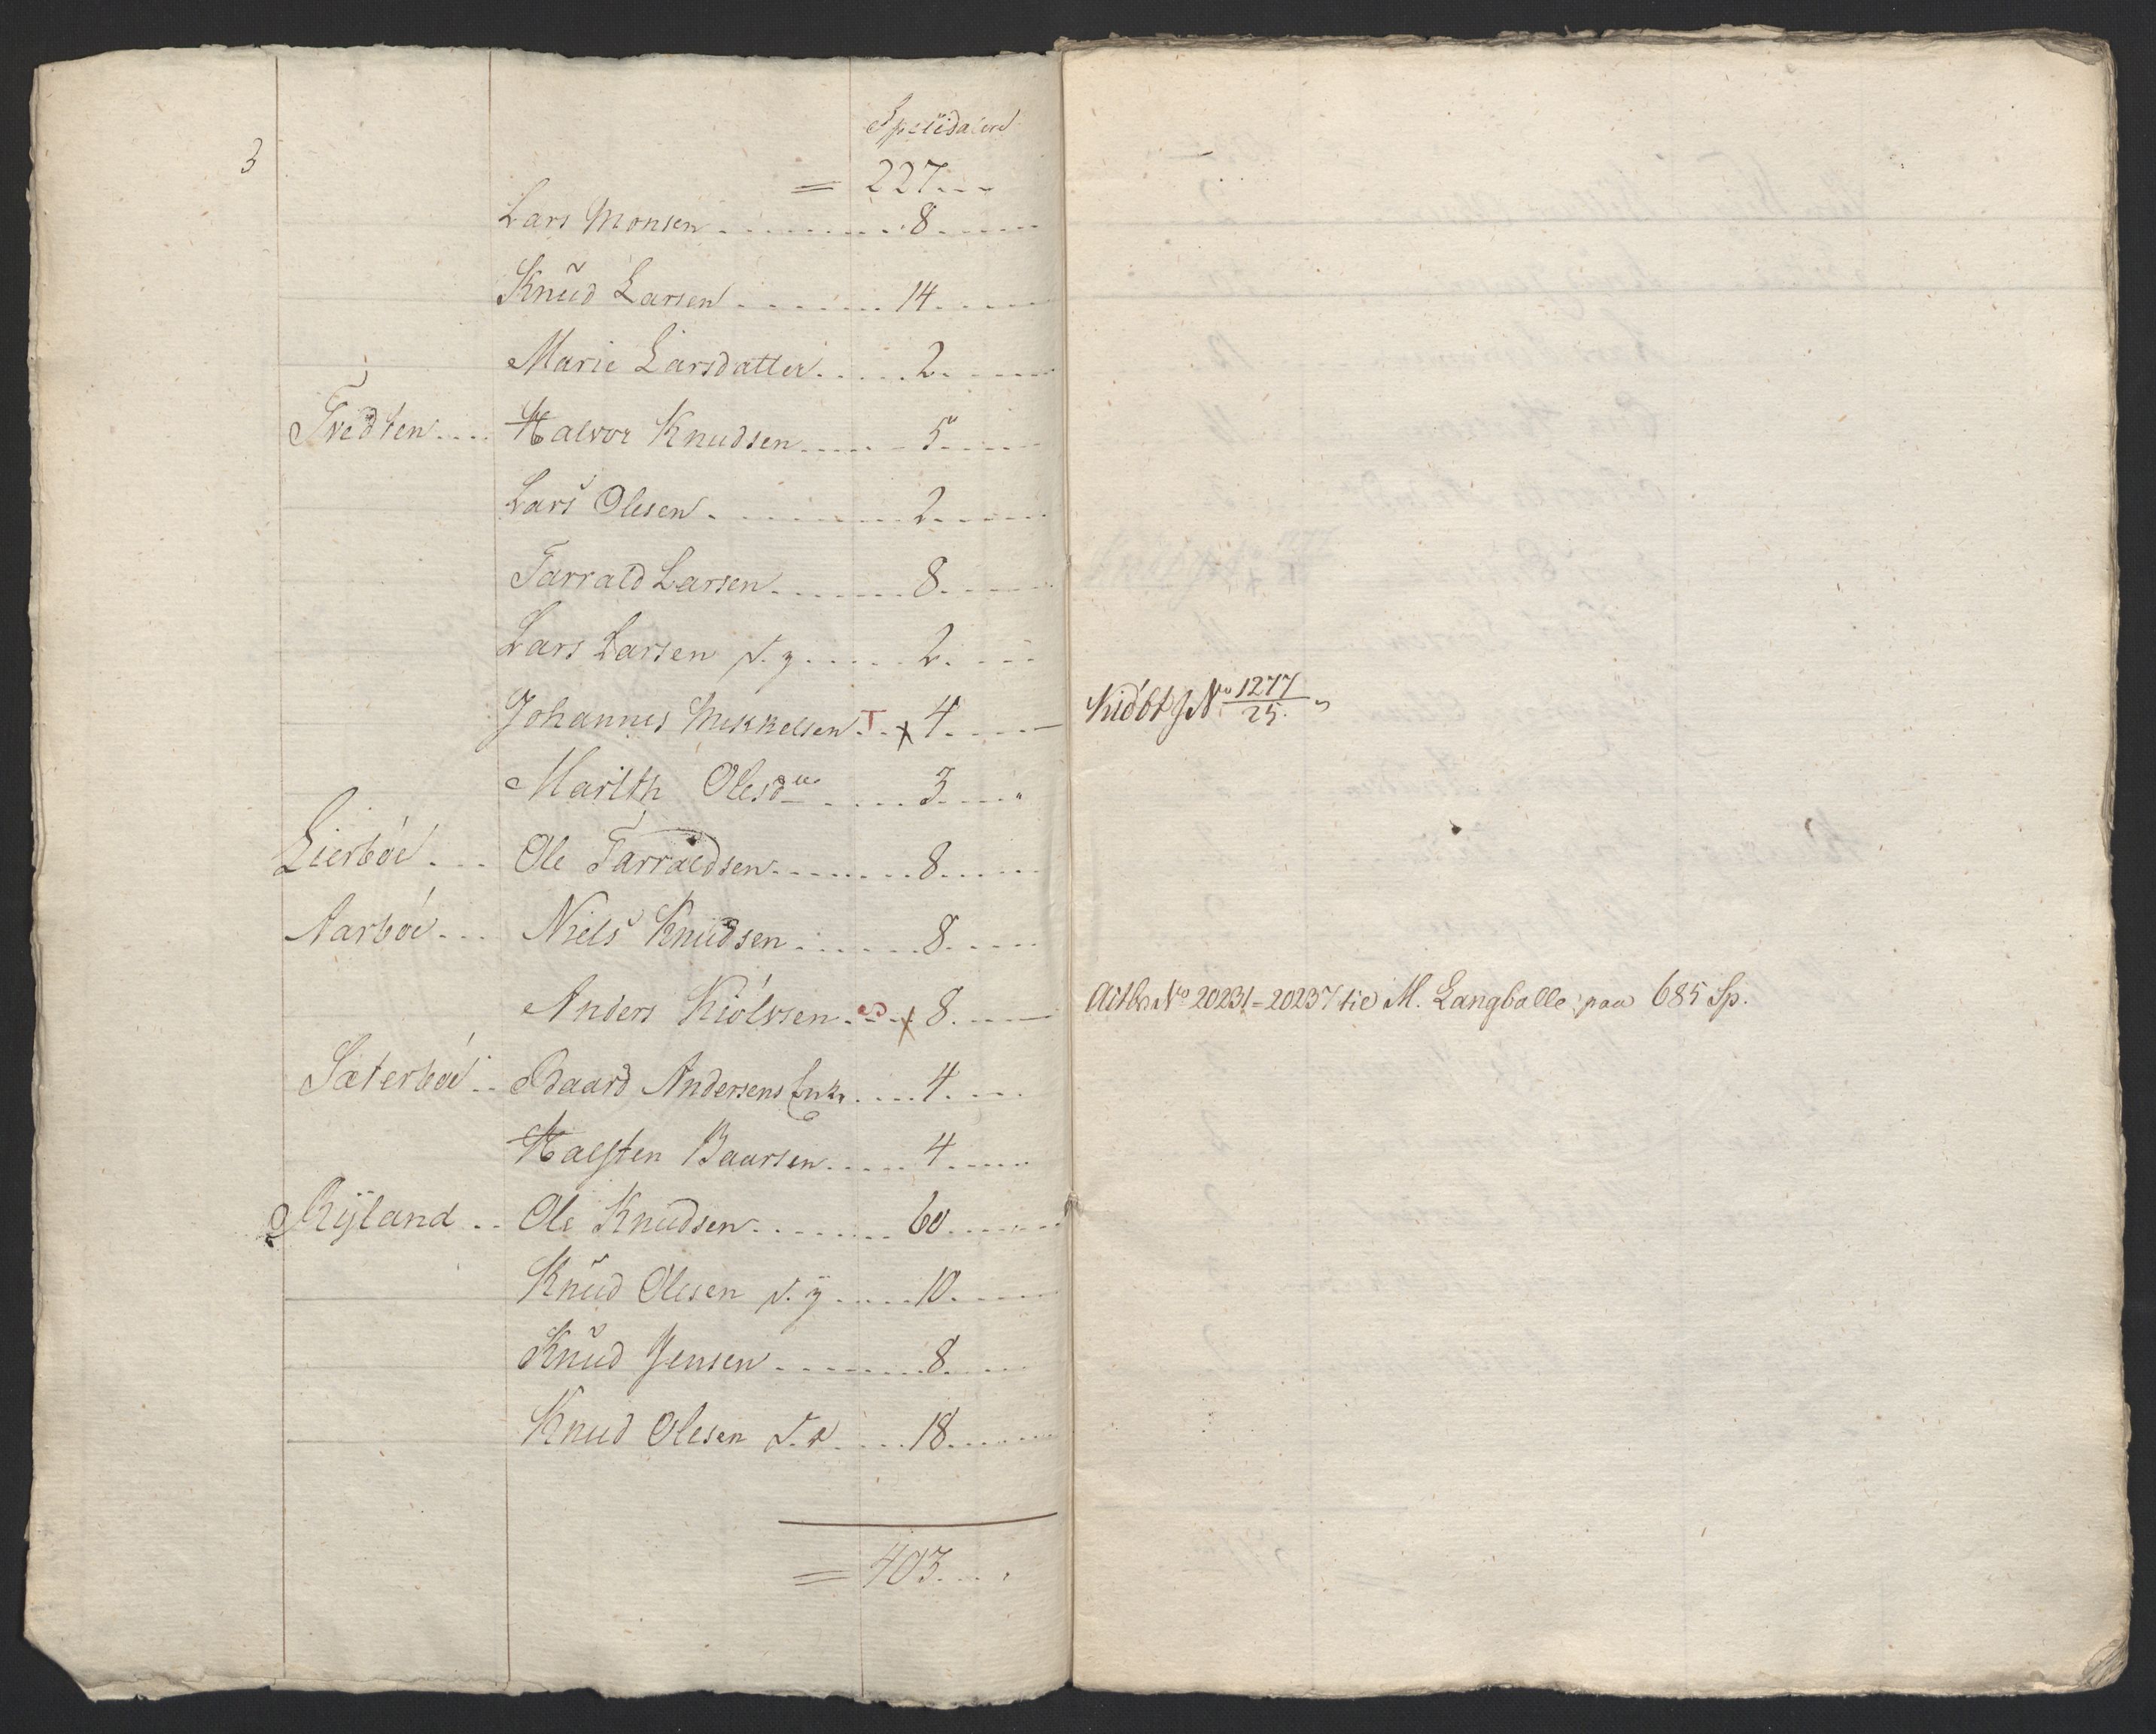 3
Speciedaler
= 227...
Lars Monsen ......... 8.....
Knud Larsen ....... 14.....
Marie Larsdatter ..... 2.....
Tvedten .... Halvor Knudsen ...... 5.....
Lars Olesen ......... 2.....
Tarrald Larsen ....... 8.....
Lars Larsen d. y. ..... 2.....
Johannes Mikkelsen T x 4.....
Marith Olesdtr .... 3.....
Lierbøe ... Ole Tarraldsen ....... 8.....
Aarbøe ... Niels Knudsen ...... 8.....
Anders Kiølvsen ... x 8.....
Sæterbøe .. Odaard Andersens Enke .... 4.....
Halsten Baarsen ..... 4.....
Myland .. Ole Knudsen ....... 60.....
Knud Olesen d. y ..... 10.....
Knud Jensen ....... 8.....
Knud Olesen d. æ .... 18.....
= 403....
Kiøbt J No 1277/25.
No 20231-20237 til M. Langballe paa 685 Sp.